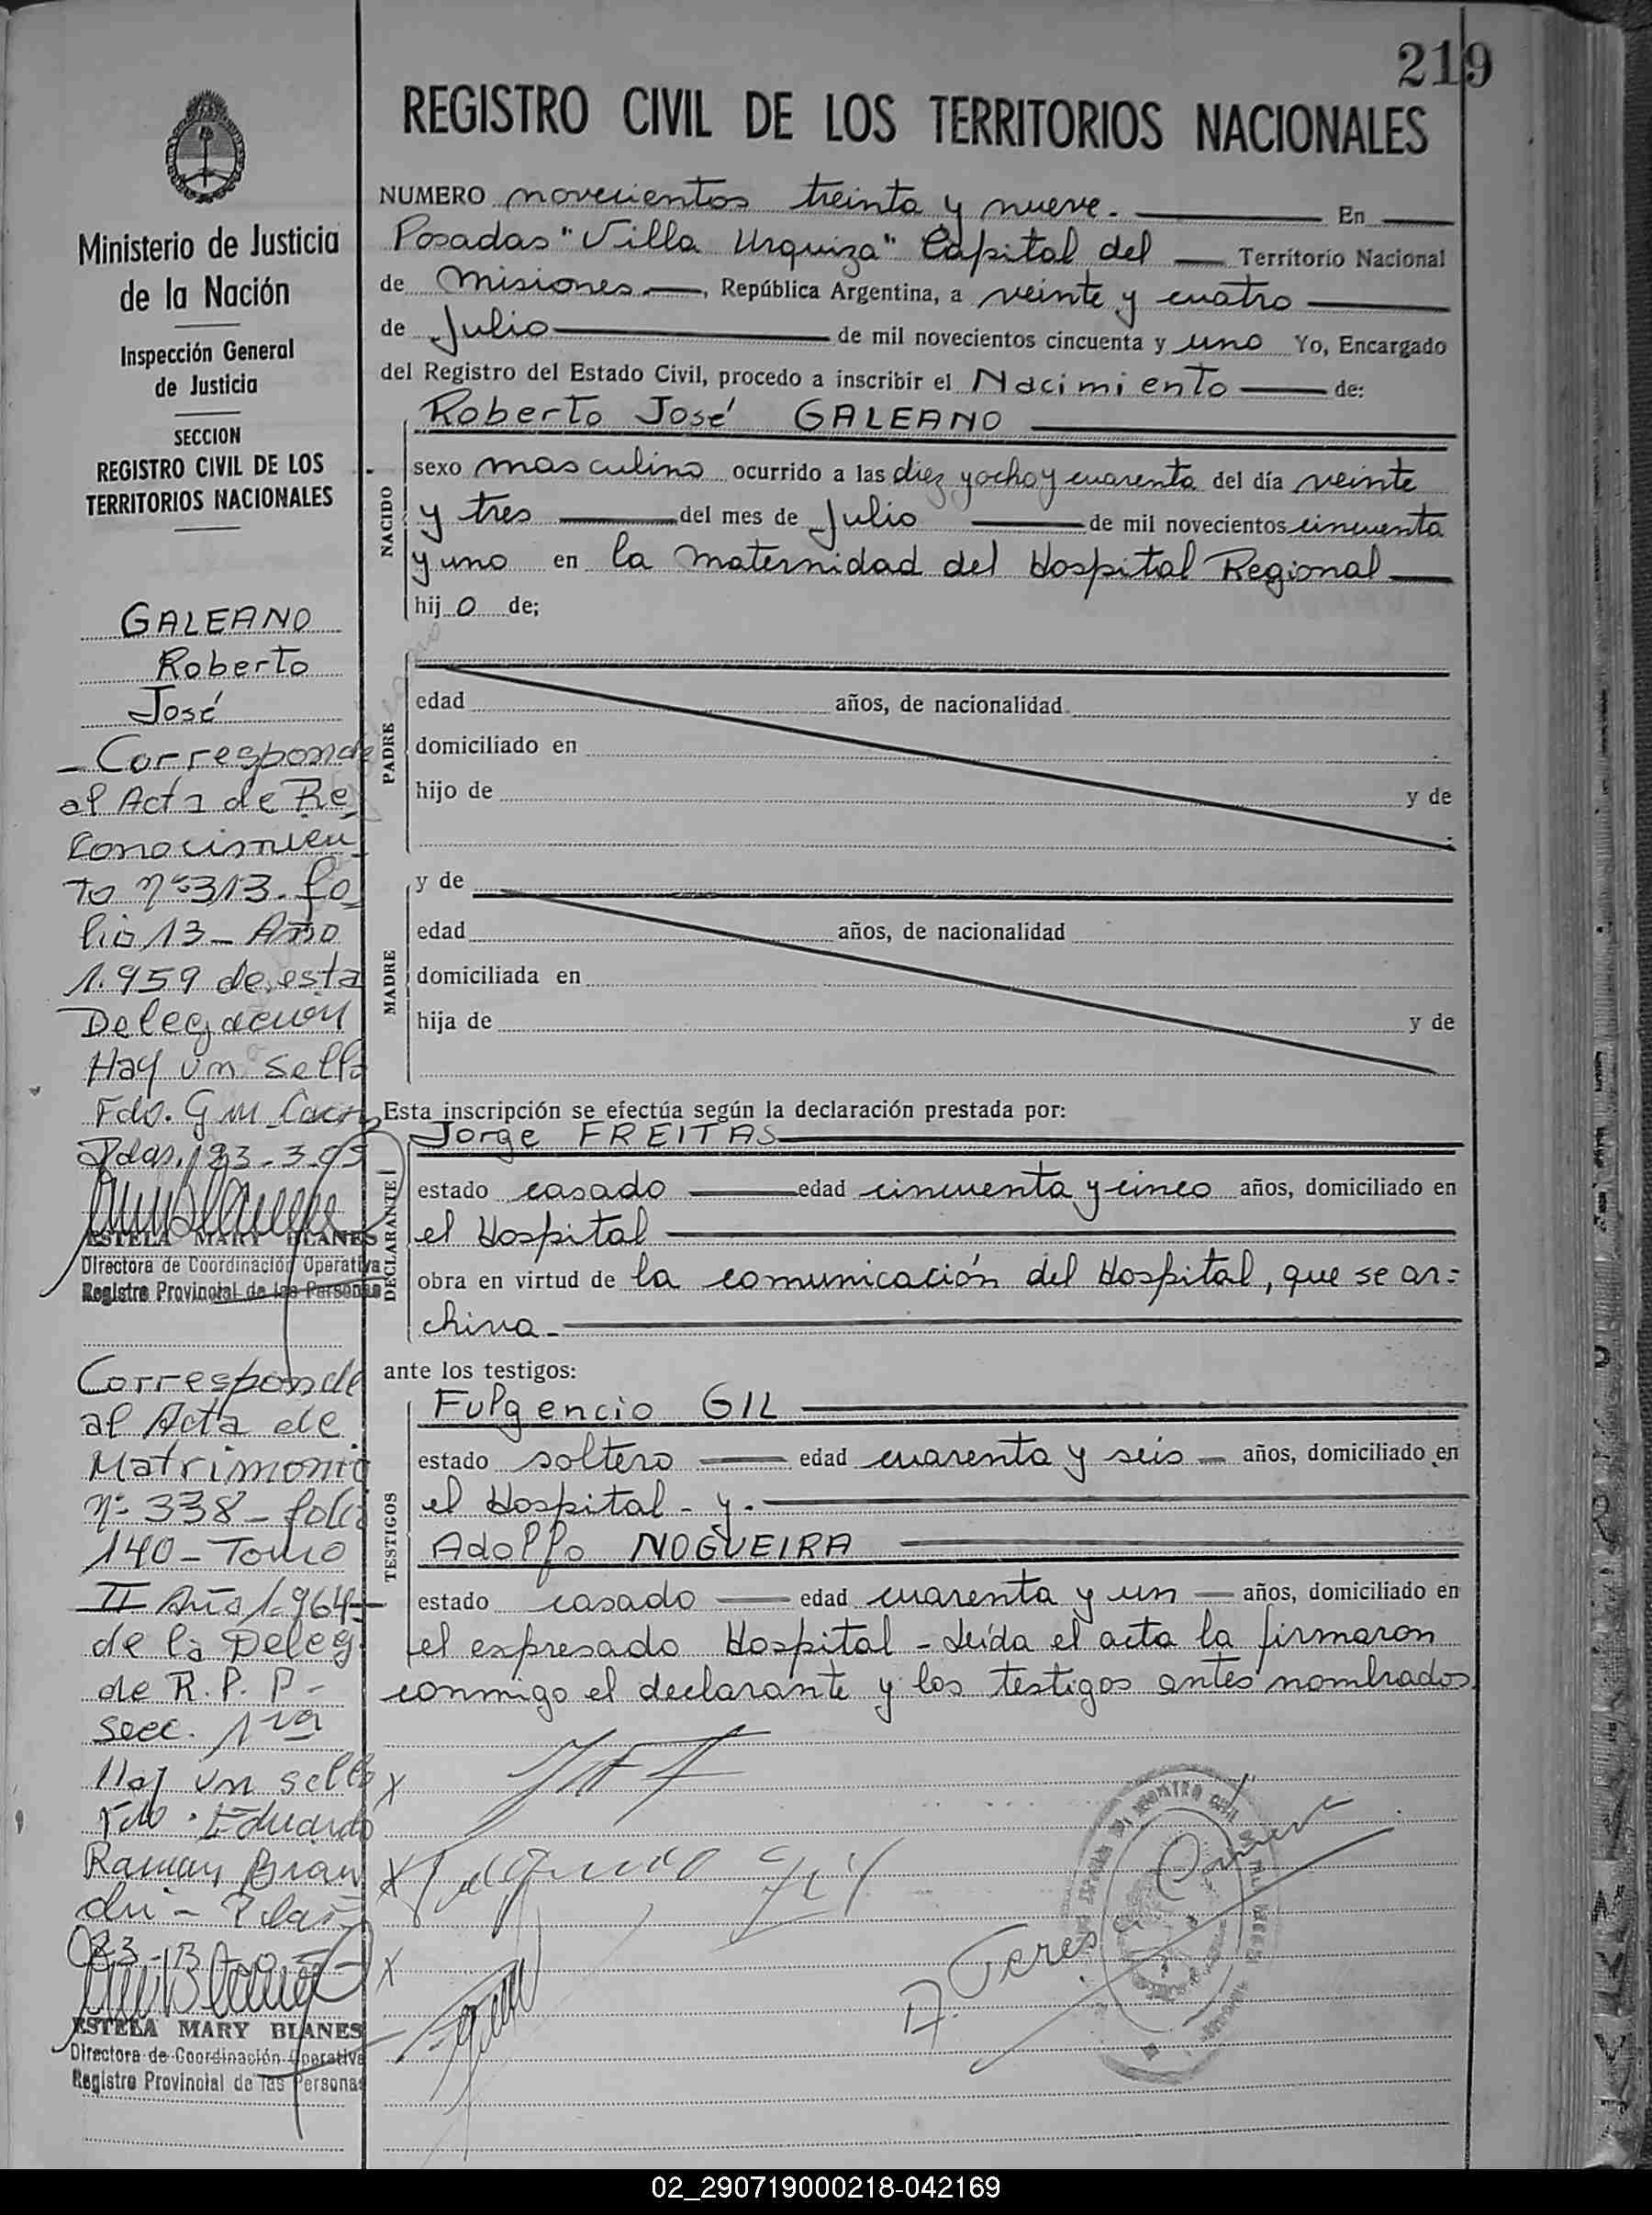 219
REGISTRO CIVIL DE LOS TERRITORIOS NACIONALES
Ministerio de Justicia
de la Nación
Inspección General
de Justicia
SECCION
REGISTRO CIVIL DE LOS
TERRITORIOS NACIONALES
GALEANO
Roberto
José
- Corresponde
al Acta de Re
conocimien
to nº 313. fo
lio 13 - Año
1.959 de esta
Delegación
Hay un sello
Fdo. G M
Pdas, 23-3-
ESTELA MARY BLANES
Directora de Coordinación Operativa
Registro Provincial de las Personas
Corresponde
al Acta de
Matrimonio
nº 338 - folio
140 - Tomo
II Año 1.964 -
de la Deleg.
de R. P. P -
secc. 1ra
Hay un sello
Fdo. Eduardo
Ramon
ESTELA MARY BLANES
Directora de Coordinación Operativa
Registro Provincial de las Personas
NUMERO novecientos treinta y nueve. En
Posadas "Villa Urquiza" Capital del Territorio Nacional
de Misiones, República Argentina, a veinte y cuatro
de Julio de mil novecientos cincuenta y uno Yo, Encargado
del Registro del Estado Civil, procedo a inscribir el Nacimiento de:
Roberto José GALEANO
NACIDO
sexo masculino ocurrido a las diez y ocho y cuarenta del día veinte
y tres del mes de Julio de mil novecientos cincuenta
y uno en la maternidad del Hospital Regional
hij o de;
PADRE
edad años, de nacionalidad
domiciliado en
hijo de y de
MADRE
y de
edad años, de nacionalidad
domiciliada en
hija de y de
Esta inscripción se efectúa según la declaración prestada por:
Jorge FREITAS
DECLARANTE
estado casado edad cincuenta y cinco años, domiciliado en
el Hospital
obra en virtud de la comunicación del Hospital, que se ar=
chiva.
ante los testigos:
Fulgencio GIL
TESTIGOS
estado soltero edad cuarenta y seis - años, domiciliado en
el Hospital - y -
Adolfo NOGUEIRA
estado casado edad cuarenta y un años, domiciliado en
el expresado Hospital - Leída el acta la firmaron
conmigo el declarante y los testigos antes nombrados
X
X Fulgencio Gil
X
02_290719000218-042169